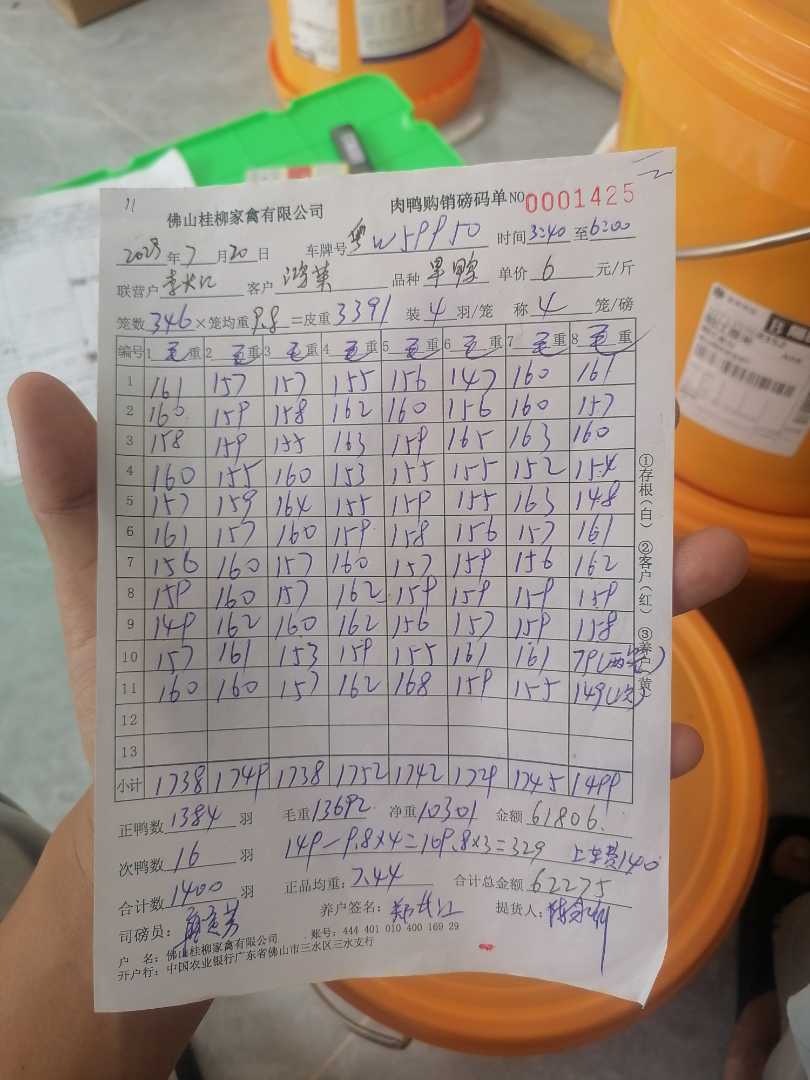 11
佛山桂柳家禽有限公司 肉鸭购销磅码单 NO 0001425
2023年7月20日 车牌号 粤W59950 时间3:40至6:00
联营户 李长江 客户 鸿業 品种 单价 6 元/斤
笼数346×笼均重9.8=皮重3391 装4羽/笼 称4笼/磅
编号 1毛重 2毛重 3毛重 4毛重 5毛重 6毛重 7毛重 8毛重
1 161 157 157 155 156 147 160 161
2 160 159 158 162 160 156 160 157
3 158 159 155 163 159 165 163 160
4 160 155 160 153 155 155 152 154
5 157 159 164 155 159 155 163 148
6 161 157 160 159 158 156 157 161
7 156 160 157 160 157 159 156 162
8 159 160 157 162 159 159 159 159
9 149 162 160 162 156 157 159 158
10 157 161 153 159 155 161 161 79(两笼)
11 160 160 157 162 168 159 155 149(次)
12
13
小计 1738 1749 1738 1752 1742 1729 1745 1499
正鸭数1384羽 毛重13692 净重10301 金额61806.
次鸭数16羽 149-9.8×4=109.8×3=329 上车费140
合计数1400羽 正品均重:7.44 合计总金额62275
司磅员: 养户签名: 郑长江 提货人:
户 名:佛山桂柳家禽有限公司 账号:444 401 010 400 169 29
开户行:中国农业银行广东省佛山市三水区三水支行
①存根(白) ②客户(红) ③养户(黄)